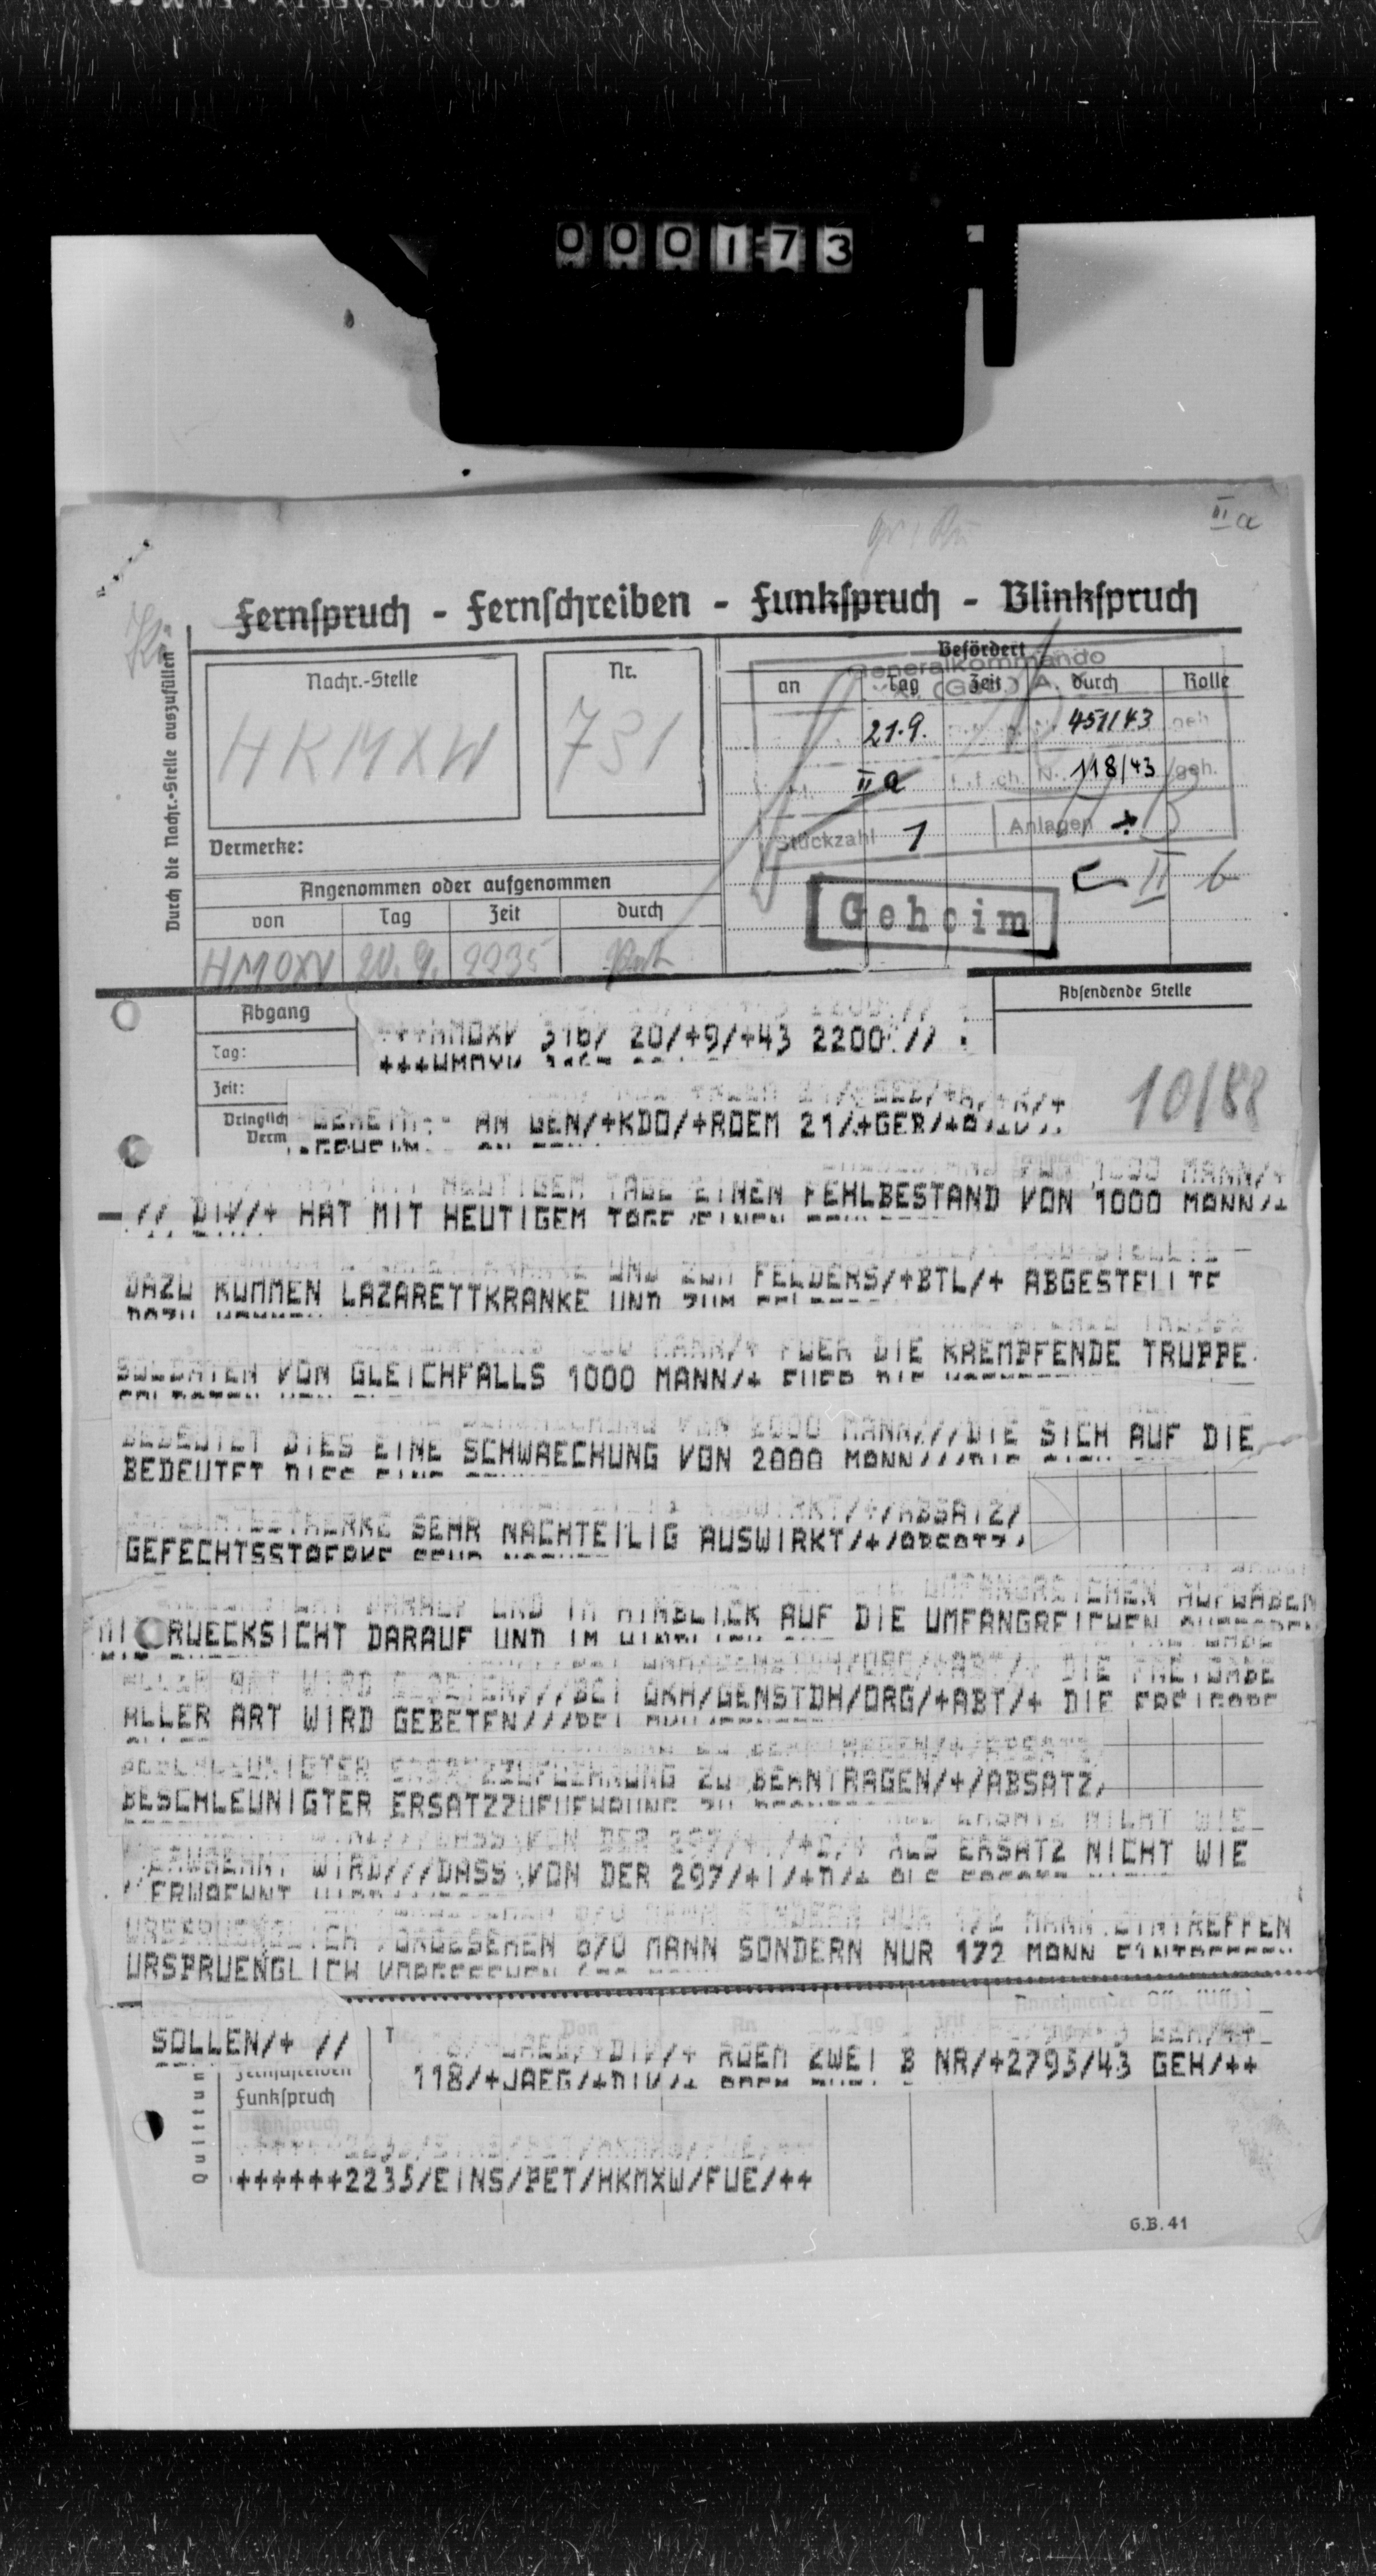 000173
II a
Fernspruch - Fernschreiben - Funkspruch - Blinkspruch
Durch die Nachr.-Stelle auszufüllen
Nachr.-Stelle
HKMXW
Nr.
731
Befördert
an Tag Zeit durch Rolle
Generalkommando
21.9. 451/43 geh.
II a N. 118/43 geh.
Stückzahl 1 Anlagen
II b
Geheim
Vermerke:
Angenommen oder aufgenommen
von Tag Zeit durch
HMOXV 20.9. 2235
Abgang
Tag:
Zeit:
Dringlich
Verm
Absendende Stelle
10/88
+++HMOXV 316/ 20/+9/+43 2200 //
GEHEIM AN GEN/+KDO/+ROEM 21/+GEB/+A/+K/+
// DIV/+ HAT MIT HEUTIGEM TAGE EINEN FEHLBESTAND VON 1000 MANN/+
DAZU KOMMEN LAZARETTKRANKE UND ZUM FELDERS/+BTL/+ ABGESTELLTE
SOLDATEN VON GLEICHFALLS 1000 MANN/+ FUER DIE KAEMPFENDE TRUPPE
BEDEUTET DIES EINE SCHWAECHUNG VON 2000 MANN///DIE SICH AUF DIE
GEFECHTSSTAERKE SEHR NACHTEILIG AUSWIRKT/+/ABSATZ/
MIT RUECKSICHT DARAUF UND IM HINBLICK AUF DIE UMFANGREICHEN AUFGABEN
ALLER ART WIRD GEBETEN///BEI OKH/GENSTDH/ORG/+ABT/+ DIE FREIGABE
BESCHLEUNIGTER ERSATZZUFUEHRUNG ZU BEANTRAGEN/+/ABSATZ/
ERWAEHNT WIRD///DASS VON DER 297/+I/+D/+ ALS ERSATZ NICHT WIE
URSPRUENGLICH VORGESEHEN 670 MANN SONDERN NUR 172 MANN EINTREFFEN
SOLLEN/+ //
118/+JAEG/+DIV/+ ROEM ZWEI B NR/+2795/43 GEH/++
Funkspruch
++++++2235/EINS/PET/HKMXW/FUE/++
G.B. 41